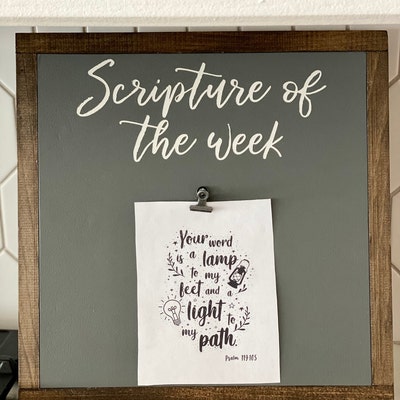 Scripture of
the week
Your word
is a lamp
to my
feet and a
light to
my path.
Psalm 119:105